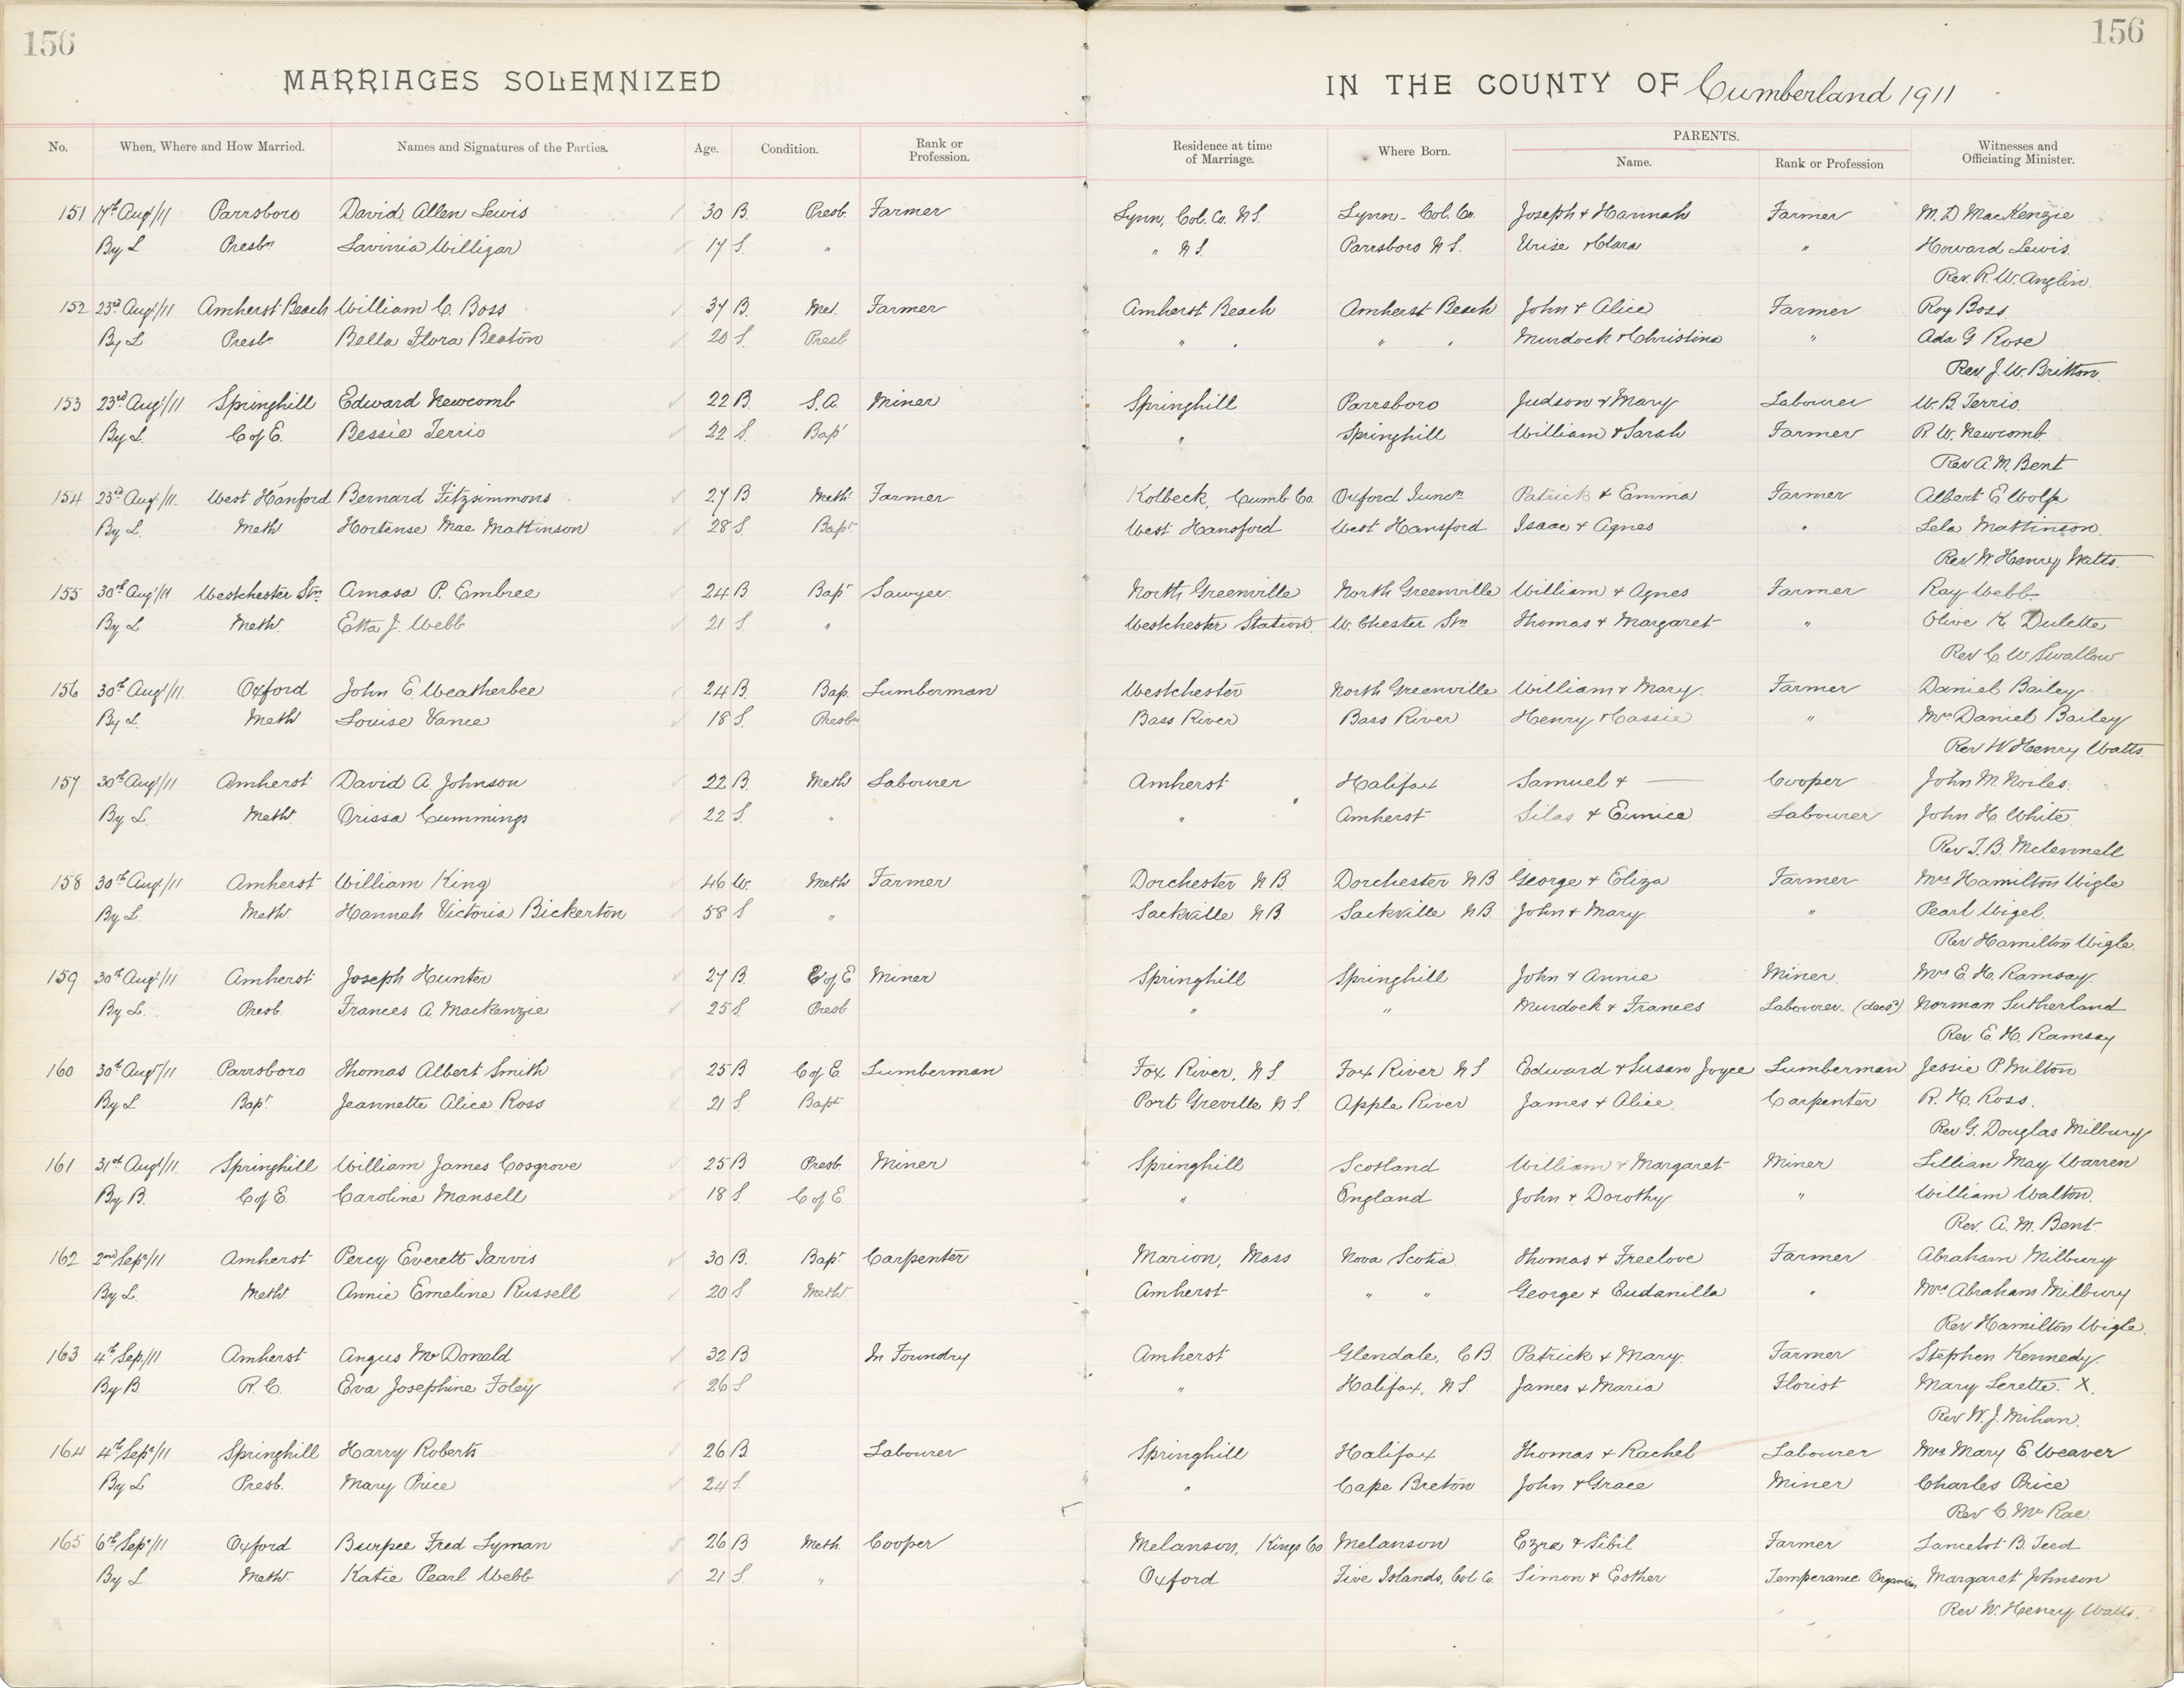 156 156
MARRIAGES SOLEMNIZED IN THE COUNTY OF Cumberland 1911
No. When, Where and How Married. Names and Signatures of the Parties. Age. Condition. Rank or Profession. Residence at time of Marriage. Where Born. PARENTS. Name. Rank or Profession Witnesses and Officiating Minister.
151 17th Augt/11 Parrsboro David Allen Lewis 30 B. Presb. Farmer Lynn, Col. Co. N.S. Lynn - Col. Co. Joseph + Hannah Farmer M. D MacKenzie
By L Presbn Lavinia Willigar 17 S. " " N.S. Parrsboro N.S. Urise + Clara " Howard Lewis.
Rev. R. W. Anglin.
152 23rd Augt/11 Amherst Beach William C. Boss 37 B. Met. Farmer Amherst Beach Amherst Beach John + Alice Farmer Roy Boss.
By L Presbn Bella Flora Beaton 20 S. Presb " " " " Murdock + Christina " Ada G Rose
Rev J. W. Britton.
153 23rd Augt/11 Springhill Edward Newcomb 22 B. S.A. Miner Springhill Parrsboro Judson + Mary Labourer W. B. Terrio.
By L. C of E. Bessie Terrio 22 S. Bapt " Springhill William + Sarah Farmer R. W. Newcomb.
Rev A. M. Bent
154 23rd Augt/11. West Hanford Bernard Fitzsimmons 27 B Meth. Farmer Kolbeck, Cumb Co. Oxford Juncn Patrick + Emma Farmer Albert E Wolfe
By L. Meth Hortense Mae Mattinson 28 S. Bapt. West Hansford West Hansford Isaac + Agnes " Lela Mattinson.
Rev. W. Henry Watts.
155 30th Augt/11 Westchester Stn. Amasa P. Embree 24 B Bapt Sawyer. North Greenville North Greenville William + Agnes Farmer Ray Webb.
By L Meth. Etta J. Webb 21 S. " Westchester Station. W. Chester Stn Thomas + Margaret " Olive K. Dulette
Rev C. W. Swallow
156 30th Augt/11. Oxford John E. Weatherbee 24 B. Bap. Lumberman Westchester North Greenville William + Mary. Farmer Daniel Bailey.
By L. Meth Louise Vance 18 S. Presbn Bass River Bass River Henry + Cassie " Mrs Daniel Bailey
Rev W Henry Watts.
157 30th Augt/11 Amherst David A. Johnson 22 B. Meth Labourer Amherst Halifax Samuel + —— Cooper John M. Noiles.
By L. Meth. Orissa Cummings 22 S. " " Amherst Silas + Eunice Labourer John H White.
Rev T. B. McLennell
158 30th Augt/11 Amherst William King 46 W. Meth Farmer Dorchester N.B. Dorchester N B George + Eliza Farmer Mrs Hamilton Wigle
By L. Meth Hannah Victoria Bickerton 58 S " Sackville N.B. Sackville N.B. John + Mary. " Pearl Wigel.
Rev Hamilton Wigle.
159 30th Augt/11 Amherst Joseph Hunter 27 B. C of E Miner Springhill Springhill John + Annie Miner. Mrs E. H. Ramsay.
By L. Presb. Frances A. MacKenzie 25 S. Presb " " Murdock + Frances Labourer. (decd) Norman Sutherland
Rev. E. H. Ramsay
160 30th Augt/11 Parrsboro Thomas Albert Smith 25 B C of E. Lumberman Fox River, N.S. Fox River N S Edward + Susan Joyce Lumberman Jessie P Milton
By L Bapt. Jeannette Alice Ross 21 S. Bapt Port Greville N S. Apple River James + Alice. Carpenter R. H. Ross.
Rev G. Douglas Milbury
161 31st Augt/11. Springhill William James Cosgrove 25 B Presb. Miner Springhill Scotland William + Margaret Miner Lillian May Warren
By B. C of E. Caroline Mansell 18 S. C of E. " England John + Dorothy " William Walton.
Rev. A. M. Bent.
162 2nd Sept/11 Amherst Percy Everett Jarvis 30 B. Bapt Carpenter Marion, Mass Nova Scotia. Thomas + Freelove Farmer. Abraham Milbury
By L. Meth. Annie Emeline Russell 20 S Meth. Amherst " " George + Eudanilla " Mrs Abraham Milbury
Rev Hamilton Wigle.
163 4th Sep/11 Amherst Angus McDonald 32 B. In Foundry Amherst Glendale, C B. Patrick + Mary. Farmer Stephen Kennedy.
By B. R. C. Eva Josephine Foley 26 S " Halifax, N S. James + Maria Florist Mary Lerette. X.
Rev W. J. Mihan.
164 4th Sept/11 Springhill Harry Roberts 26 B. Labourer Springhill Halifax Thomas + Rachel Labourer Mrs Mary E. Weaver
By L Presb. Mary Price 24 S. " Cape Breton John + Grace Miner Charles Price
Rev C. McRae.
165 6th Sept/11 Oxford Burpee Fred Lyman 26 B Meth Cooper Melanson, Kings Co Melanson Ezra + Sibil Farmer Lancelot B. Teed
By L. Meth. Katie Pearl Webb 21 S. " Oxford Five Islands, Col Co. Simon + Esther Temperance Organizer Margaret Johnson
Rev W. Henry Watts.